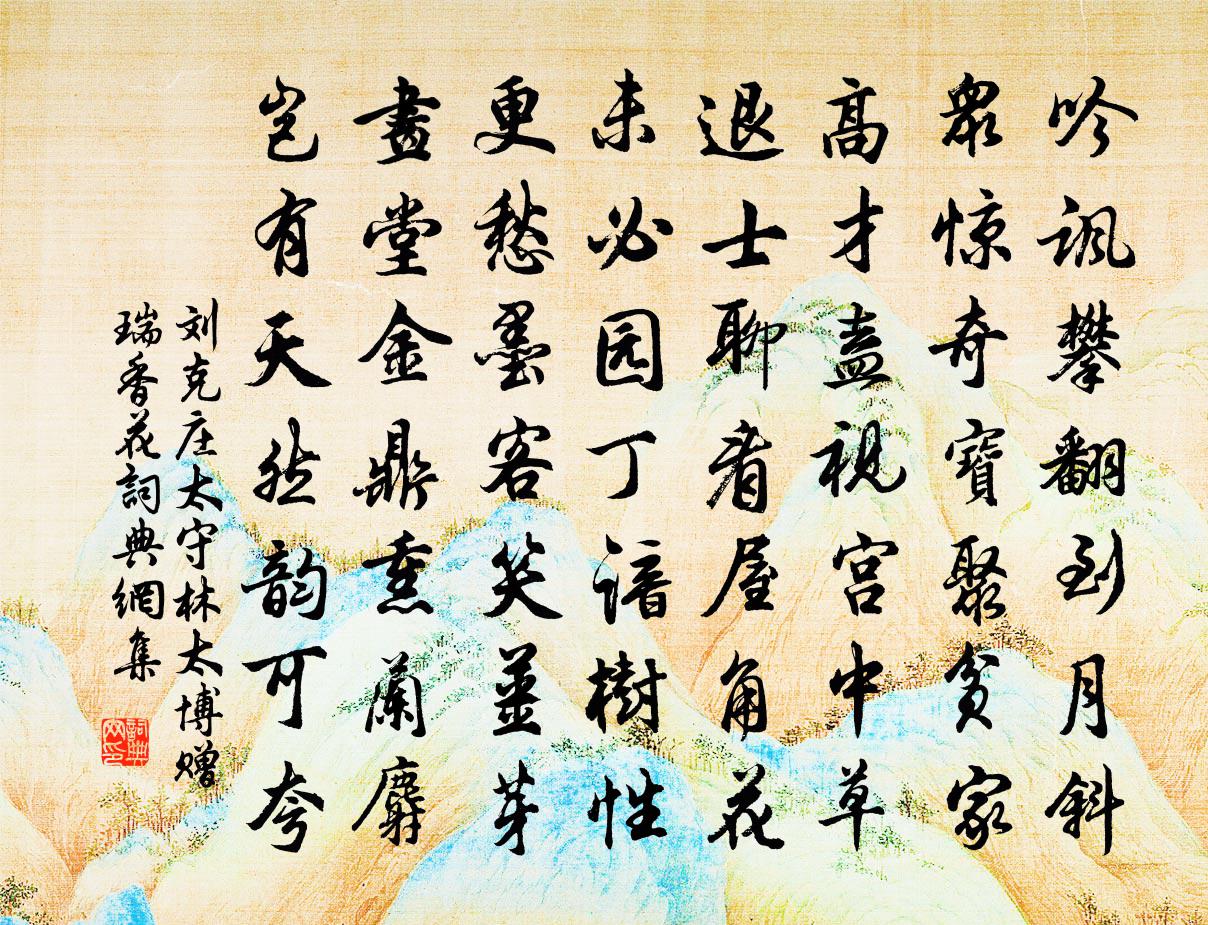 吟讽攀翻到月斜
眾惊奇寶聚贫家
高才盖视宫中草
退士聊看屋角花
未必园丁谙樹性
更愁墨客笑薑芽
畫堂金鼎熏蘭麝
岂有天然韵可夸
刘克庄太守林太博赠
瑞香花詞典網集
詞典网印